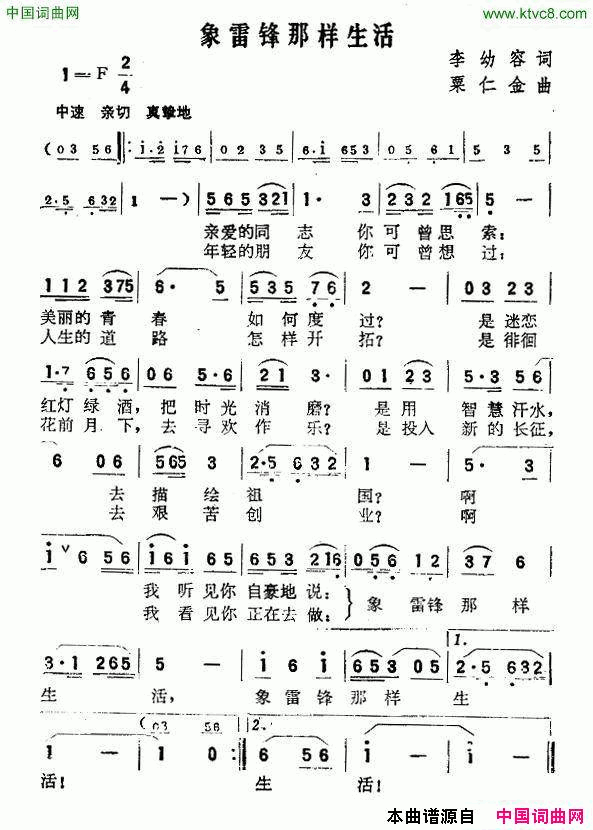 中国词曲网
www.ktvc8.com
象雷锋那样生活
1=F 2/4
李幼容词
粟仁金曲
中速 亲切 真挚地
(03 56 :i·2 i76 | 02 35 | 6·i 653 | 05 61 | 5 3 5
2·5 632 | 1 —) | 565 321 | 1· 3 | 232 165 | 5 —
亲爱的同志 你可曾思索:
年轻的朋友 你可曾想过:
112 375 | 6· 5 | 535 76 | 2 — | 03 23
美丽的青春 如何度过? 是迷恋
人生的道路 怎样开拓? 是徘徊
1·7 656 | 06 5·6 | 21 3· | 01 23 | 5·3 56
红灯绿酒,把时光消磨? 是用智慧汗水,
花前月下,去寻欢作乐? 是投入新的长征,
6 06 | 565 3 | 2·5 632 | 1 — | 5· 3
去描绘祖国? 啊
去艰苦创业? 啊
i ∨ 6 56 | i6i 65 | 653 216 | 056 12 | 37 6
我听见你自豪地说: 象雷锋那样
我看见你正在去做:
3·1 265 | 5 — | i 6 i | 653 05 | 1. 2·5 632
生活, 象雷锋那样生
(03 56
1 — | 1 0 :| 2. 6 56 | i — | i 0
活! 生活!
本曲谱源自 中国词曲网